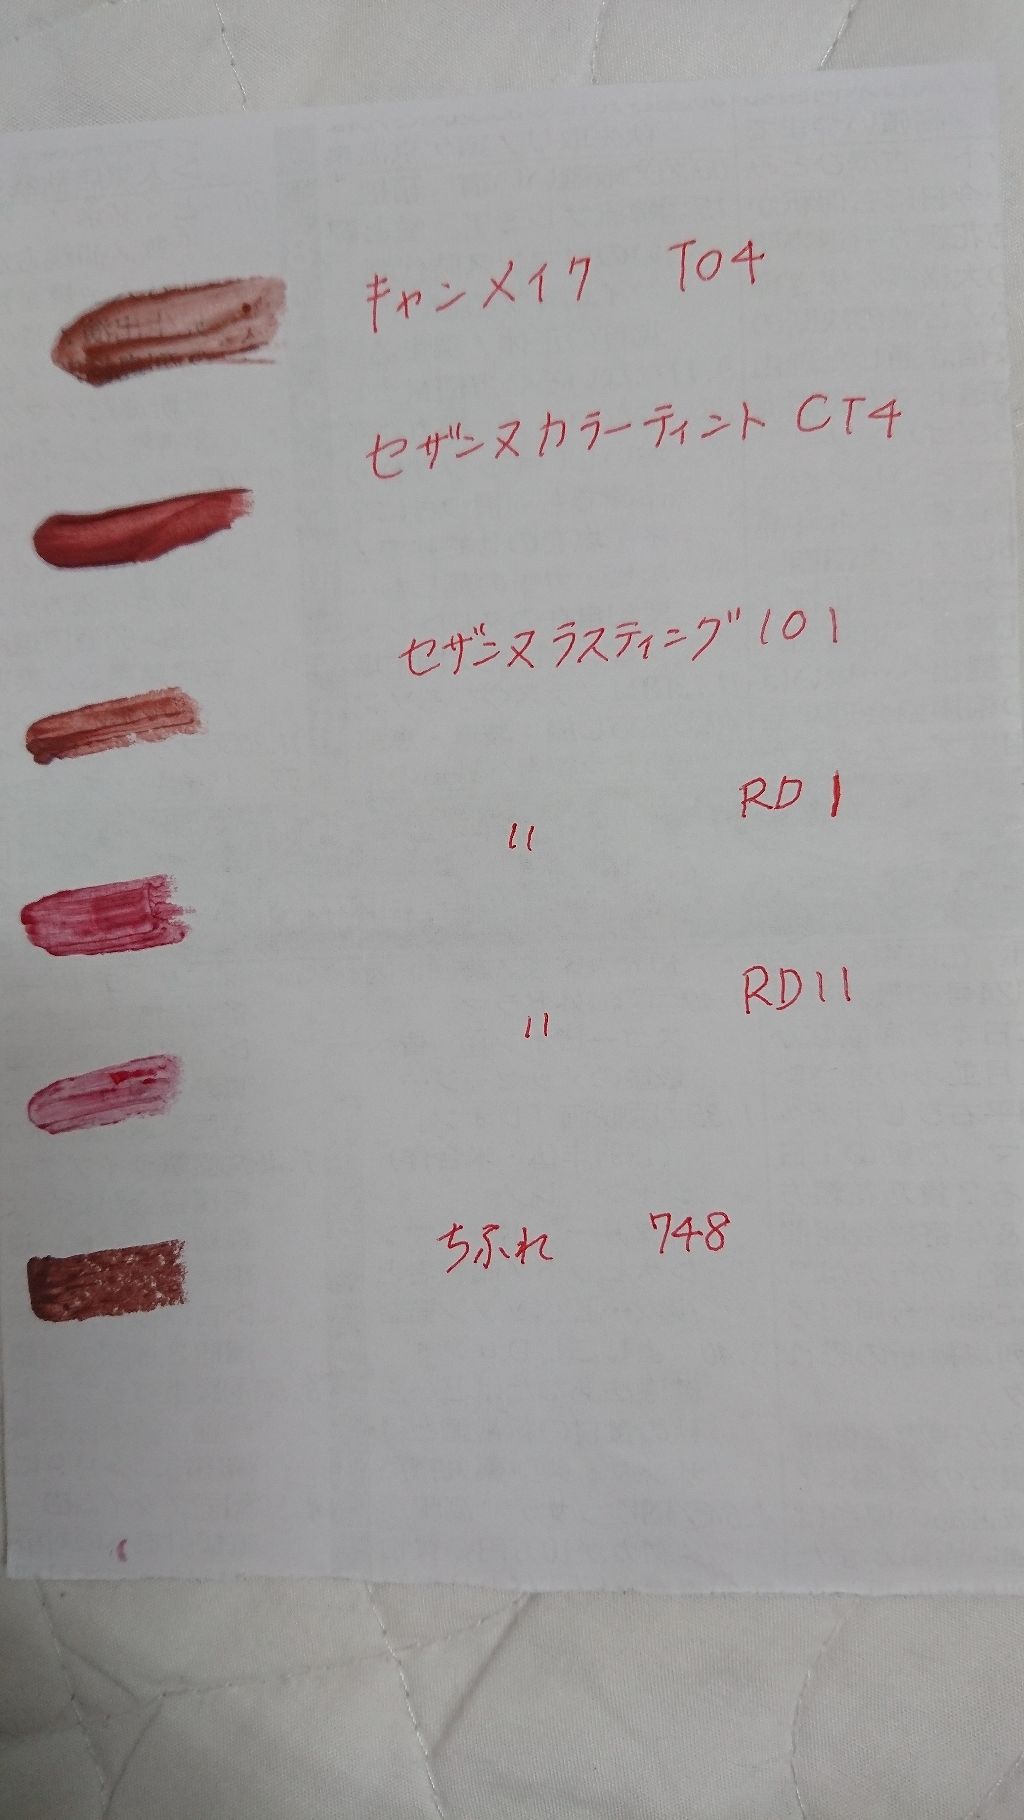 キャンメイク T04
セザンヌカラーティント CT4
セザンヌラスティング 101
〃 RD1
〃 RD11
ちふれ 748